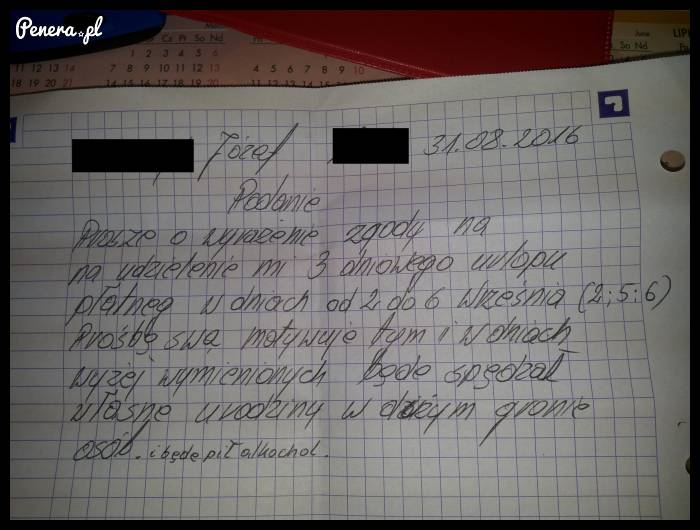 Penera.pl
Józef 31.08.2016
Podanie
Proszę o wyrażenie zgody na
na udzielenie mi 3 dniowego urlopu
płatneg w dniach od 2 do 6 Września (2;5;6)
Prośbę swą motywuję tym i w dniach
wyżej wymienionych będę spędzał
własne urodziny w dużym gronie
osób. i będę pił alkohol.